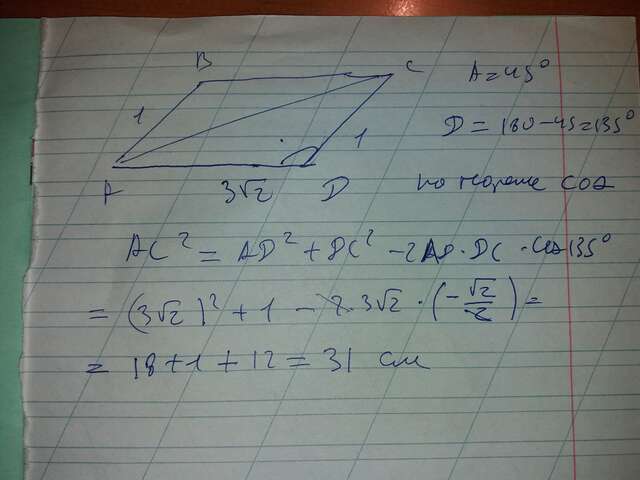 B
C
1
A
1
3√2
D
A = 45°
D = 180 - 45 = 135°
по теореме cos
AC² = AD² + DC² - 2AD · DC · cos 135°
= (3√2)² + 1 - 2 · 3√2 · (-√2/2) =
= 18 + 1 + 12 = 31 см